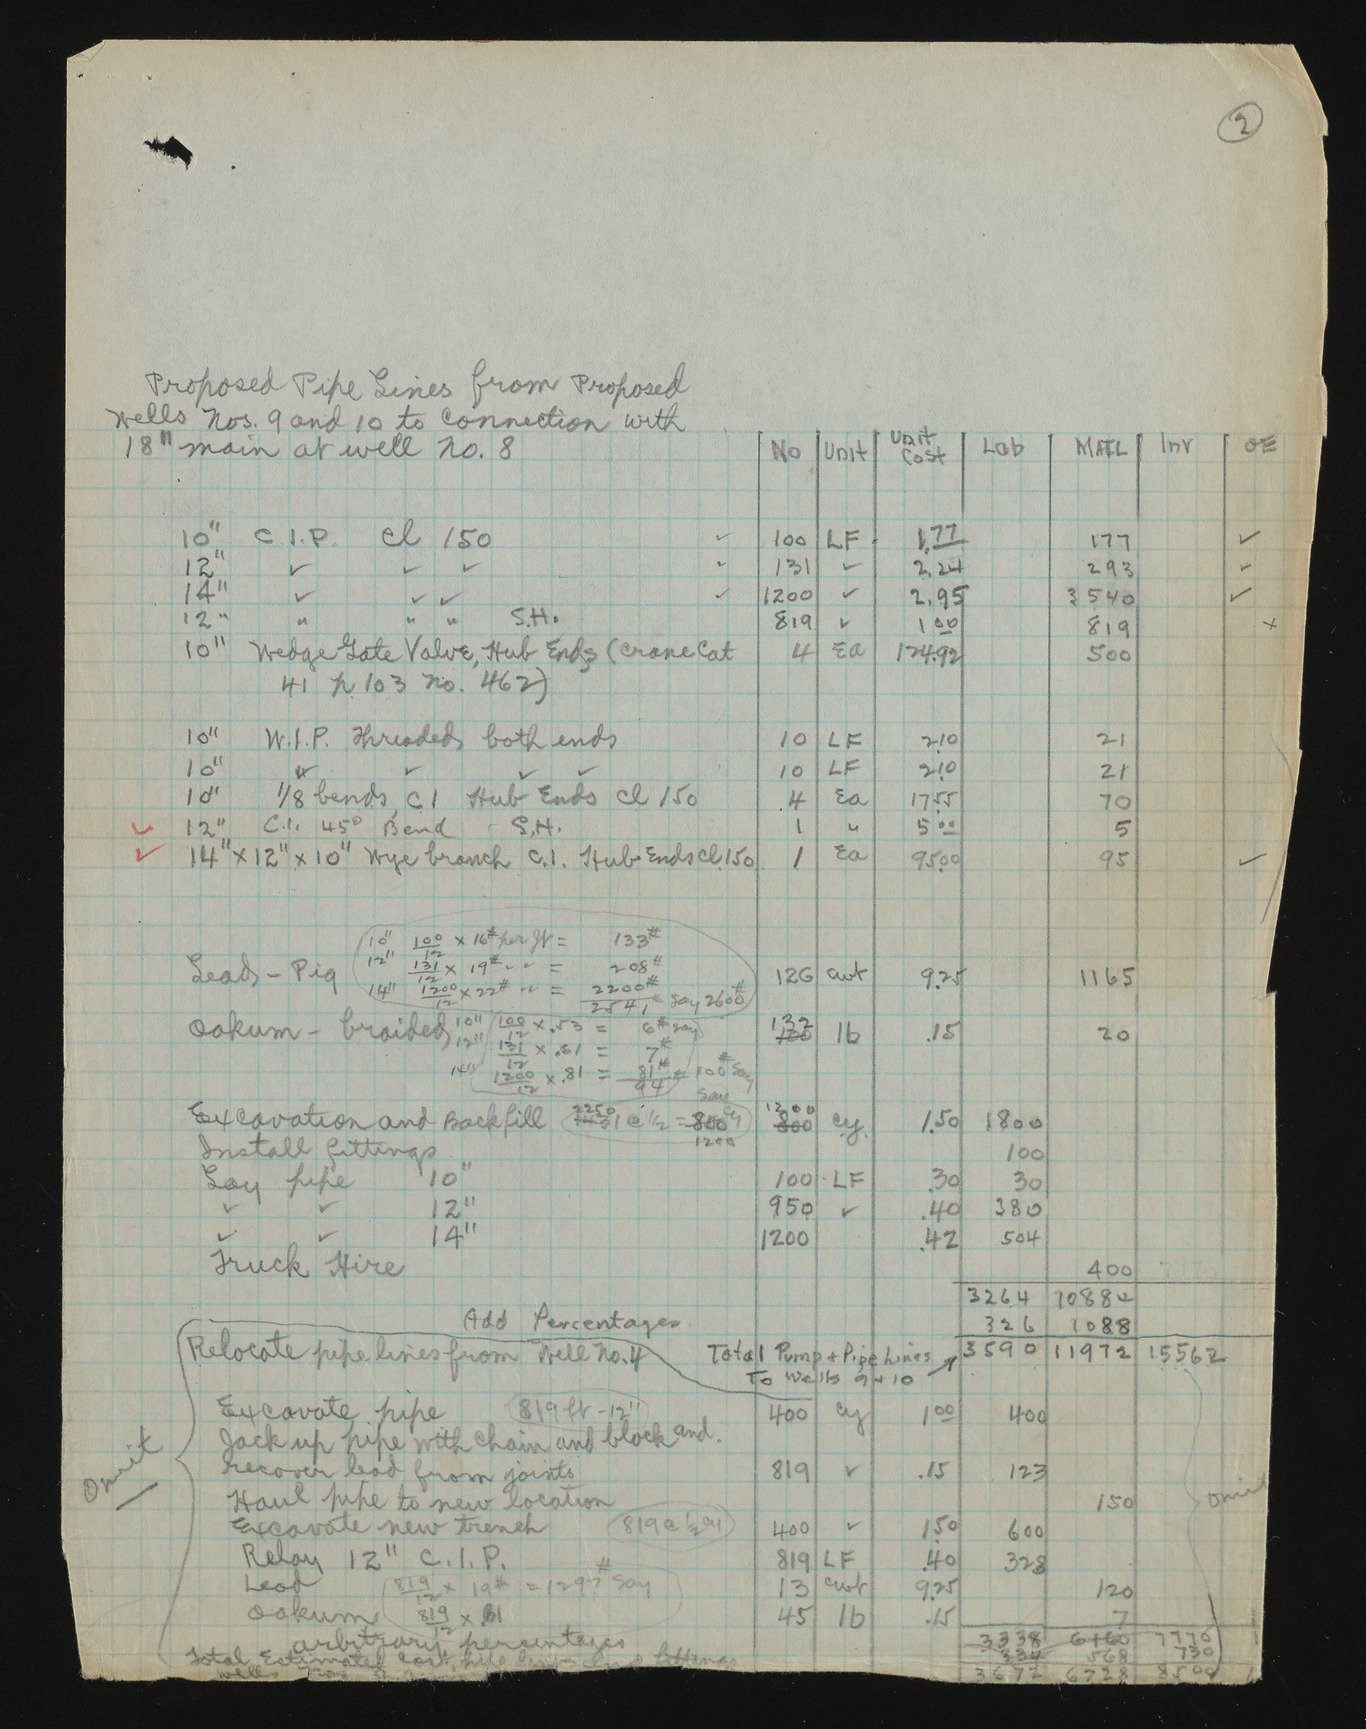 2
Proposed Pipe Lines from Proposed
Wells Nos. 9 and 10 to connection with
18" main at well No. 8
No Unit Unit Cost Lab MATL Inv OE
10" C.I.P. Cl 150 ✓ 100 LF 1.77 177 ✓
12" ✓ ✓ ✓ ✓ 131 ✓ 2.24 293 ✓
14" ✓ ✓ ✓ ✓ 1200 ✓ 2.95 3540 ✓
12" " " " S.H. 819 ✓ 1.00 819 x
10" Wedge Gate Valve, Hub Ends (Crane Cat 4 Ea 124.92 500
41 p. 103 No. 462)
10" W.I.P. Threaded both ends 10 LF 2.10 21
10" ✓ ✓ ✓ ✓ 10 LF 2.10 21
10" 1/8 bends, C.I Hub Ends Cl 150 4 Ea 17.55 70
✓ 12" C.I. 45° Bend S.H. 1 " 5.00 5
✓ 14" x 12" x 10" Wye branch C.I. Hub Ends Cl. 150 1 Ea 95.00 95 ✓
10" 100/12 x 16# per Jt = 133#
12" 131/12 x 19# " " = 208#
Lead - Pig 126 cwt 9.25 1165
14" 1200/12 x 22# " " = 2200#
2541 say 2600#
Oakum - braided 10" 100/12 x .53 = 6# say 132 lb .15 20
12" 131/12 x .61 = 7#
14" 1200/12 x .81 = 81#
94 = 100# say
Excavation and Backfill 2250 @ 1/2 = 800 cy say 1200 1200 800 cy. 1.50 1800
Install fittings 100
Lay pipe 10" 100 LF .30 30
✓ ✓ 12" 950 ✓ .40 380
✓ ✓ 14" 1200 .42 504
Truck Hire 400
3264 10884
Add Percentages 326 1088
Relocate pipe lines from Well No. 4 Total Pump + Pipe Lines To Wells 9 + 10 3590 11972 15562
Excavate pipe 819 ft - 12" 400 cy 1.00 400
Jack up pipe with chain and block and.
recover lead from joints 819 ✓ .15 123
Omit
Haul pipe to new location 150 omit
Excavate new trench 819 @ 1/2 cy 400 ✓ 1.50 600
Relay 12" C.I.P. 819 LF .40 328
Lead 819/12 x 19# = 1297# say 13 cwt 9.25 120
Oakum 819/12 x .61 45 lb .15 7
3338 6160 7770
arbitrary percentages 334 568 730
Total Estimated Cost, pipe lines and fittings
wells 3672 6728 8500